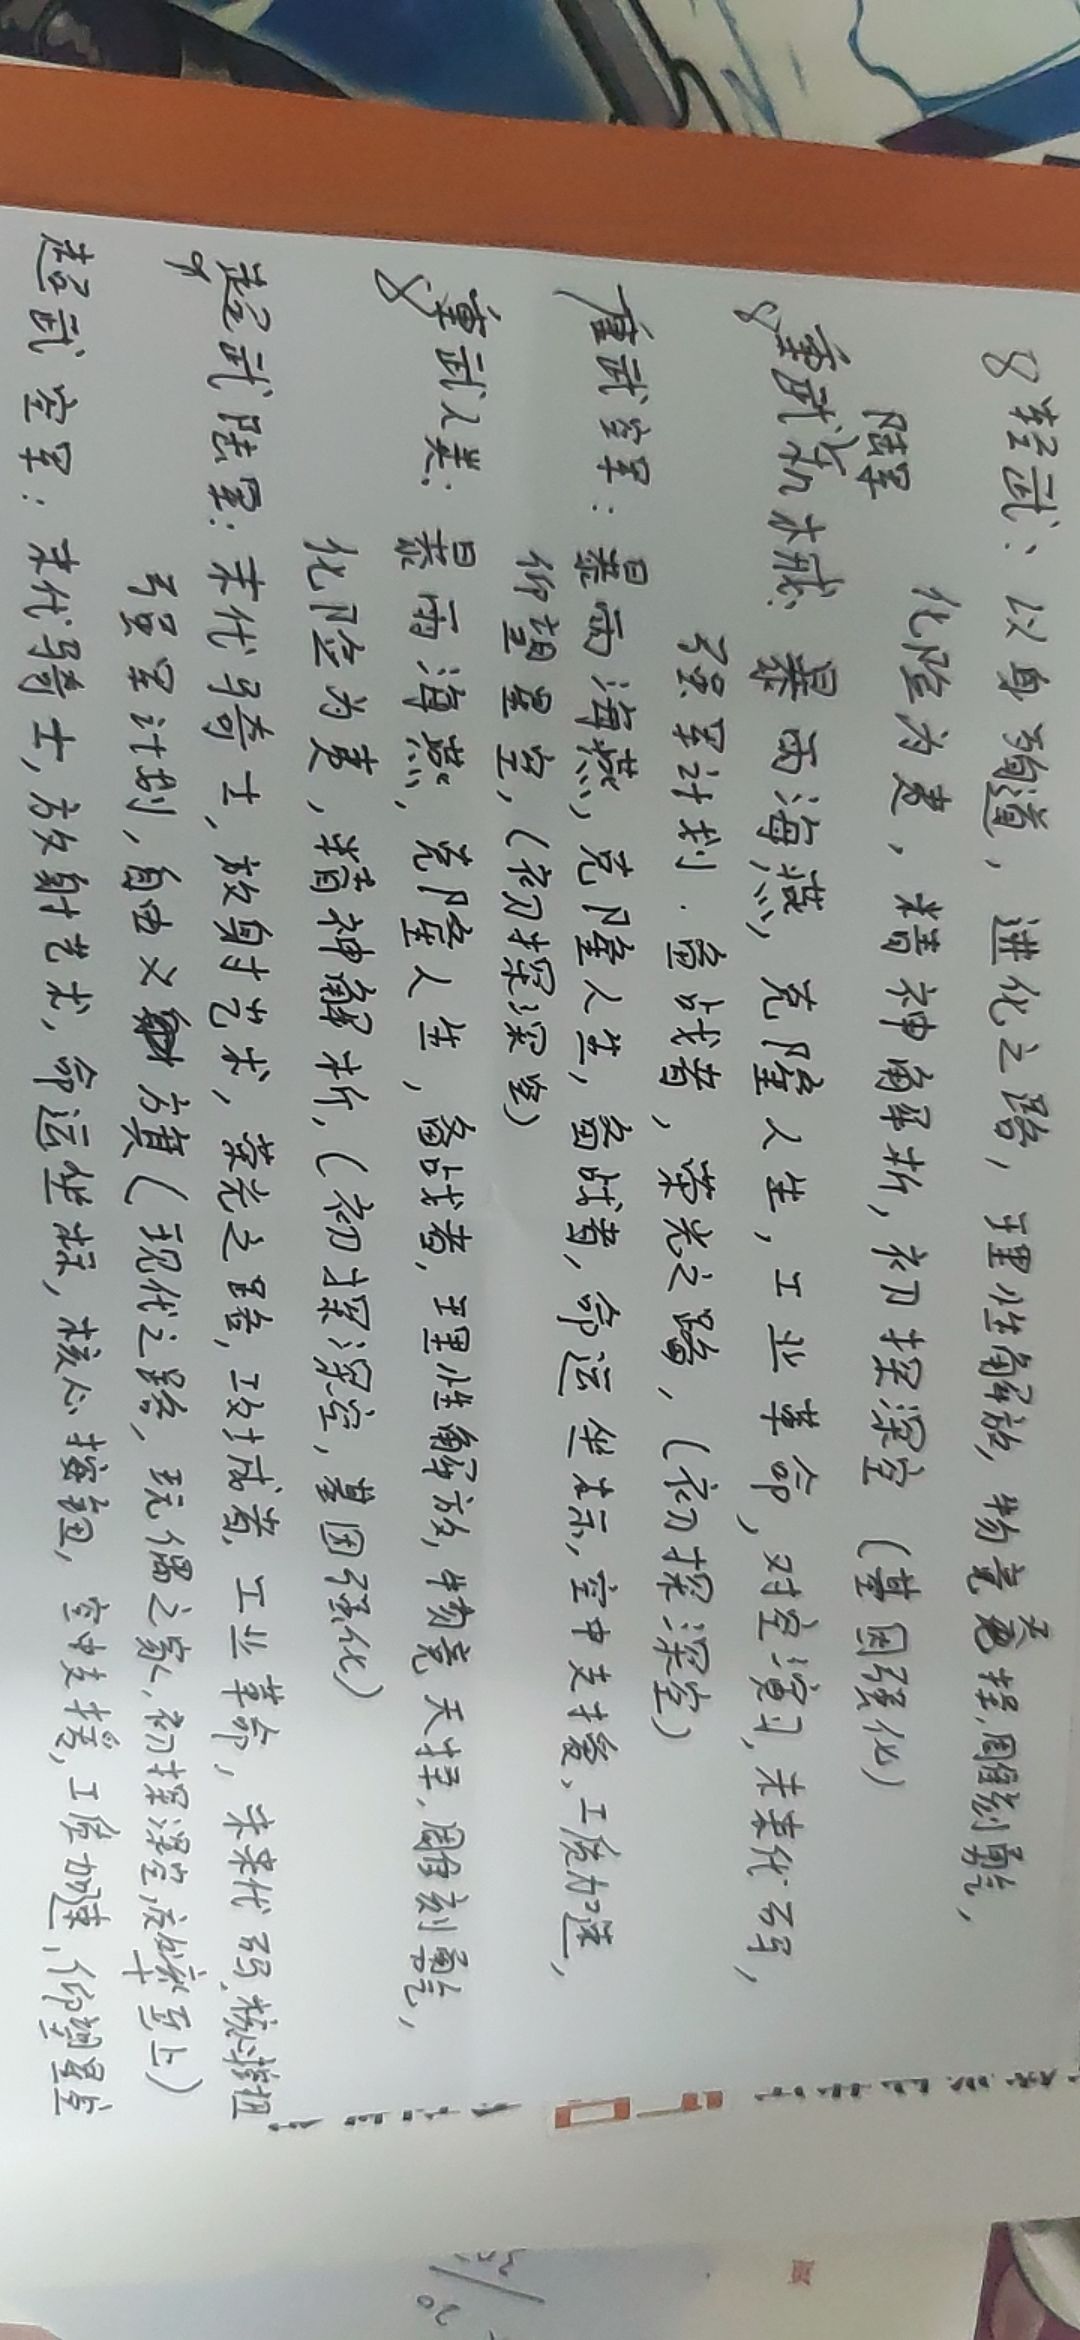 8 轻武：以身殉道，进化之路，理性解放，物竞天择，周刻
化险为夷，精神解析，初探深空（基因强化）
陆军
8 重武机械：暴雨海燕，克隆人生，工业革命，对空演习，未来代码，
强军计划，备战者，荣光之路，（初探深空）
重武空军：暴雨海燕，克隆人生，备战者，命运坐标，空中支援，工质加速，
仰望星空，（初探深空）
8 重武人类：暴雨海燕，克隆人生，备战者，理性解放，物竞天择，周刻
化险为夷，精神解析，（初探深空，基因强化）
8 超武陆军：末代骑士，放射艺术，荣光之路，改成者，工业革命，未来代码，核心按钮
强军计划，自由义方真（现代之路，玩偶之家，初探深空，效率至上）
超武空军：末代骑士，放射艺术，命运坐标，核心按钮，空中支援，工质加速，仰望星空
20